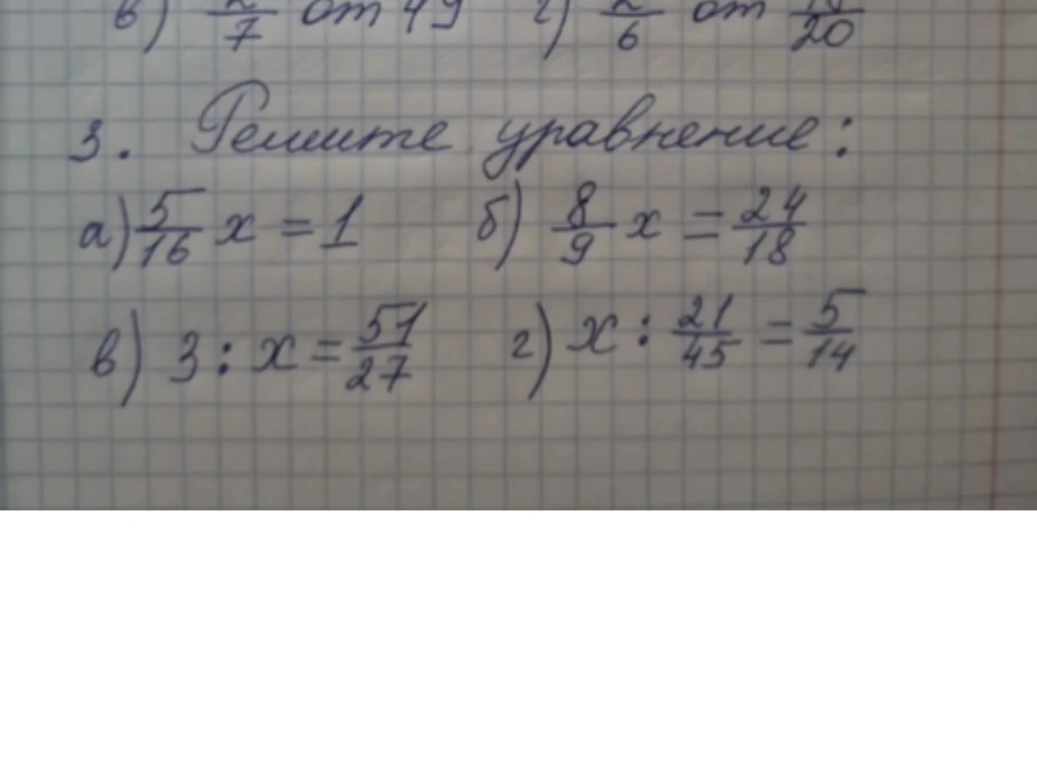 в) /7 от 49 г) /6 от /20
3. Решите уравнение:
а) 5/16 x = 1 б) 8/9 x = 24/18
в) 3 : x = 51/27 г) x : 21/45 = 5/14